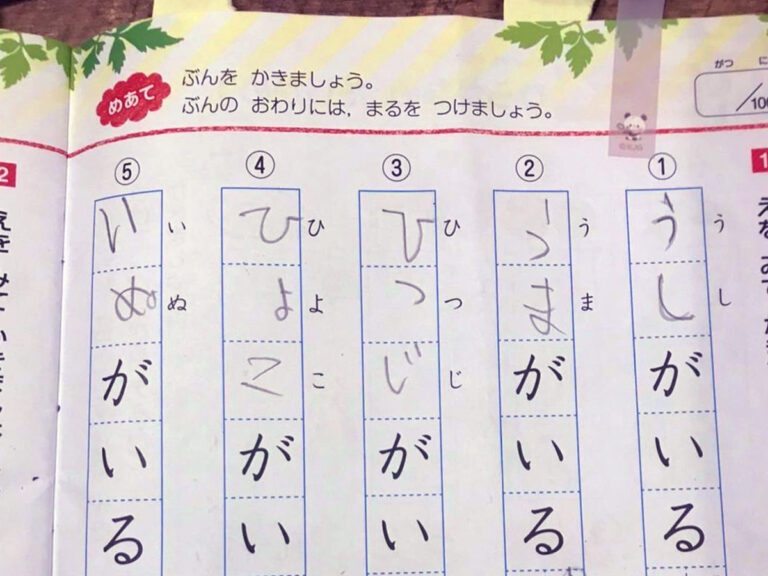 めあて
ぶんを かきましょう。
ぶんの おわりには、まるを つけましょう。
がつ
/100
① うしがいる
うし
② うまがいる
うま
③ ひつじがい
ひつじ
④ ひよこがい
ひよこ
⑤ いぬがいる
いぬ
1
2